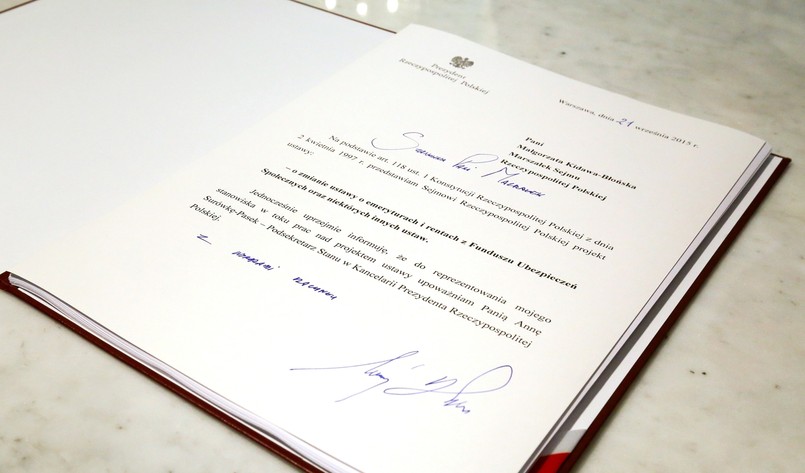 Prezydent
Rzeczypospolitej Polskiej
Warszawa, dnia 21 września 2015 r.
Pani
Małgorzata Kidawa-Błońska
Marszałek Sejmu
Rzeczypospolitej Polskiej
Szanowna Pani Marszałek
Na podstawie art. 118 ust. 1 Konstytucji Rzeczypospolitej Polskiej z dnia
2 kwietnia 1997 r. przedstawiam Sejmowi Rzeczypospolitej Polskiej projekt
ustawy:
– o zmianie ustawy o emeryturach i rentach z Funduszu Ubezpieczeń
Społecznych oraz niektórych innych ustaw.
Jednocześnie uprzejmie informuję, że do reprezentowania mojego
stanowiska w toku prac nad projektem ustawy upoważniam Panią Annę
Surówkę-Pasek – Podsekretarz Stanu w Kancelarii Prezydenta Rzeczypospolitej
Polskiej.
z wyrazami szacunku